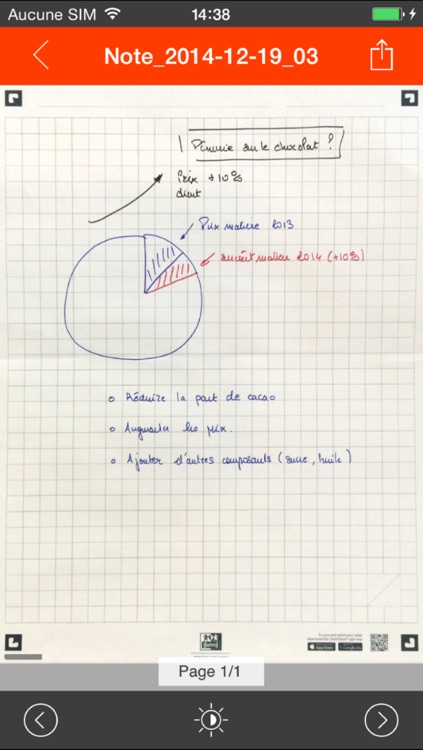 Aucune SIM 14:38
Note_2014-12-19_03
Pénurie sur le chocolat ?
Prix +10%
Prix matière 2013
2014 (+10%)
o Réduire la part de cacao
o Augmenter les prix.
o Ajouter d'autres composants (sucre, huile)
App Store
Page 1/1